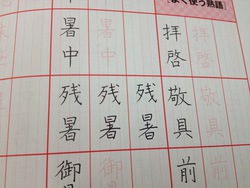 よく使う熟語
拝啓 敬具 前
拝啓 敬具 前
残暑
暑中 残暑 御
暑中 残暑 御